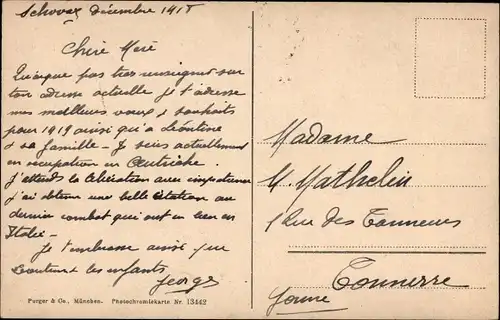 Décembre 1918
Chère Mère
Quoique pas très renseigné sur
ton adresse actuelle je t'adresse
mes meilleurs voeux & souhaits
pour 1919 ainsi qu'à Léontine
& sa famille – Je suis actuellement
en occupation en Autriche.
J'attends la libération avec impatience
j'ai obtenu une belle citation au
dernier combat qui ont eu lieu en
Italie –
Je t'embrasse ainsi que
les enfants
Georges
Purger & Co., München. Photochromiekarte Nr. 13442
Madame
M. Mathelin
Rue des Tanneurs
Tonnerre
Yonne